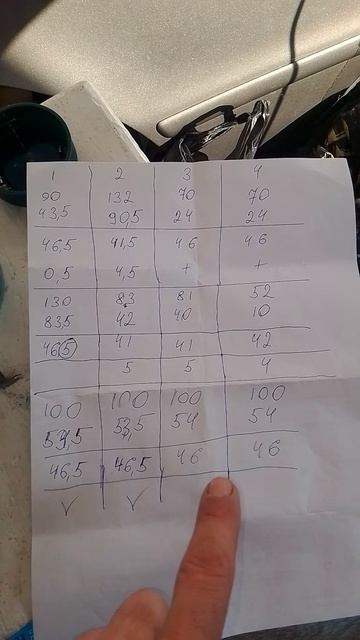 1 2 3 4
90 132 70 70
43,5 90,5 24 24
46,5 41,5 46 46
0,5 4,5 + +
130 83 81 52
83,5 42 40 10
46 5 41 41 42
5 5 4
100 100 100 100
53,5 53,5 54 54
46,5 46,5 46 46
✓ ✓